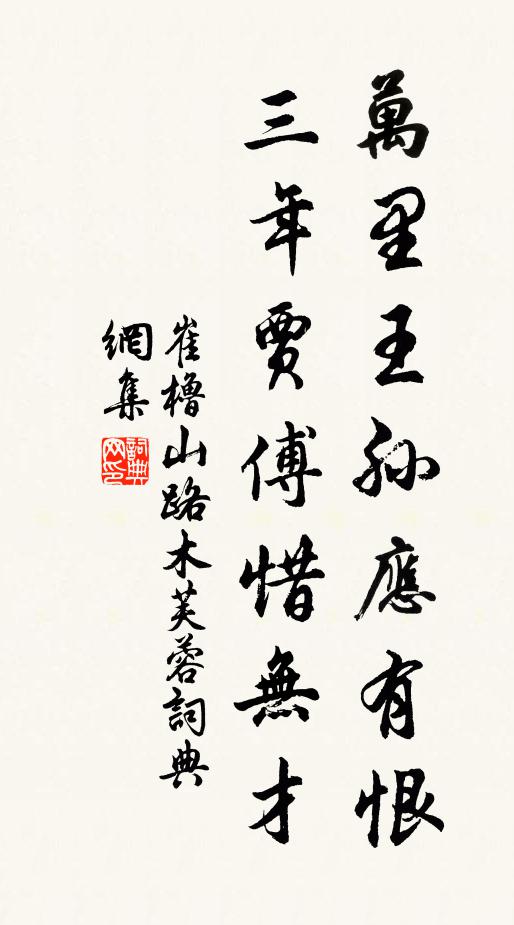 萬里王孫應有恨
三年賈傅惜無才
崔櫓山路木芙蓉詞典
網集
詞典網印